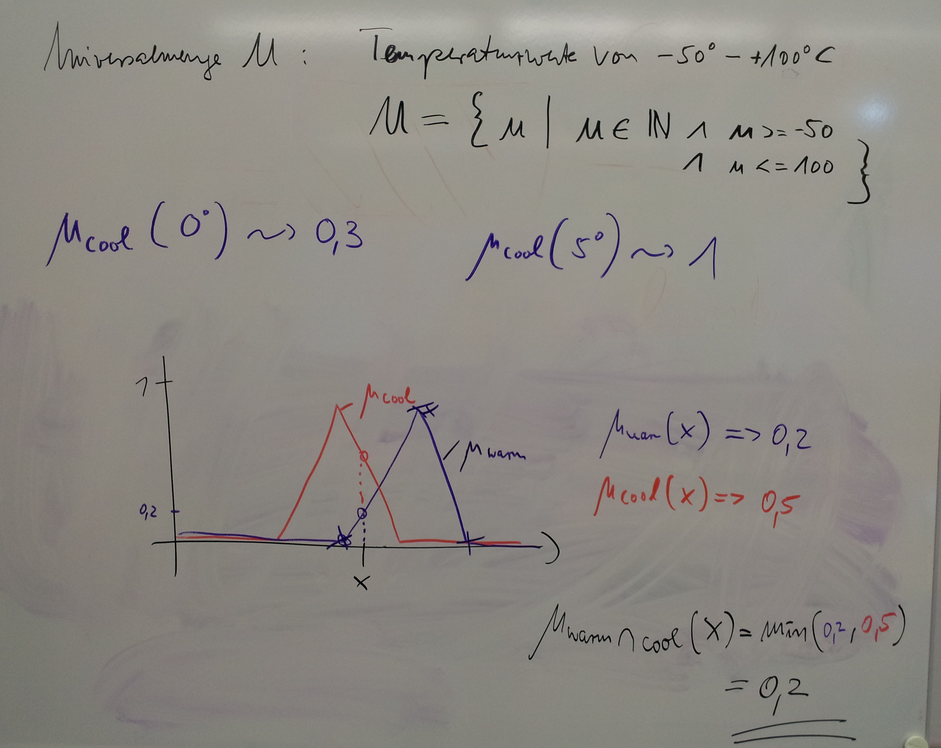 Universalmenge M : Temperaturwerte von -50° - +100°C
M = { μ | μ ∈ ℕ ∧ μ >= -50
∧ μ <= 100 }
μcool (0°) ~> 0,3 μcool (5°) ~> 1
1
μcool
μwarm
0,2
x
μwar(x) => 0,2
μcool(x) => 0,5
μwarm∩cool (x) = min(0,2, 0,5)
= 0,2